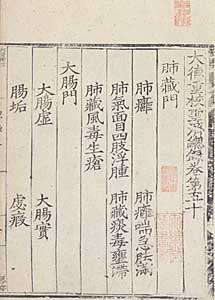 大德重校聖濟總錄卷第五十
肺藏門
肺癰 肺癰喘急滿
肺氣面目四肢浮腫 肺藏痰毒壅滯
肺藏風毒生瘡
大腸門
大腸虛 大腸實
腸垢 虙瘕